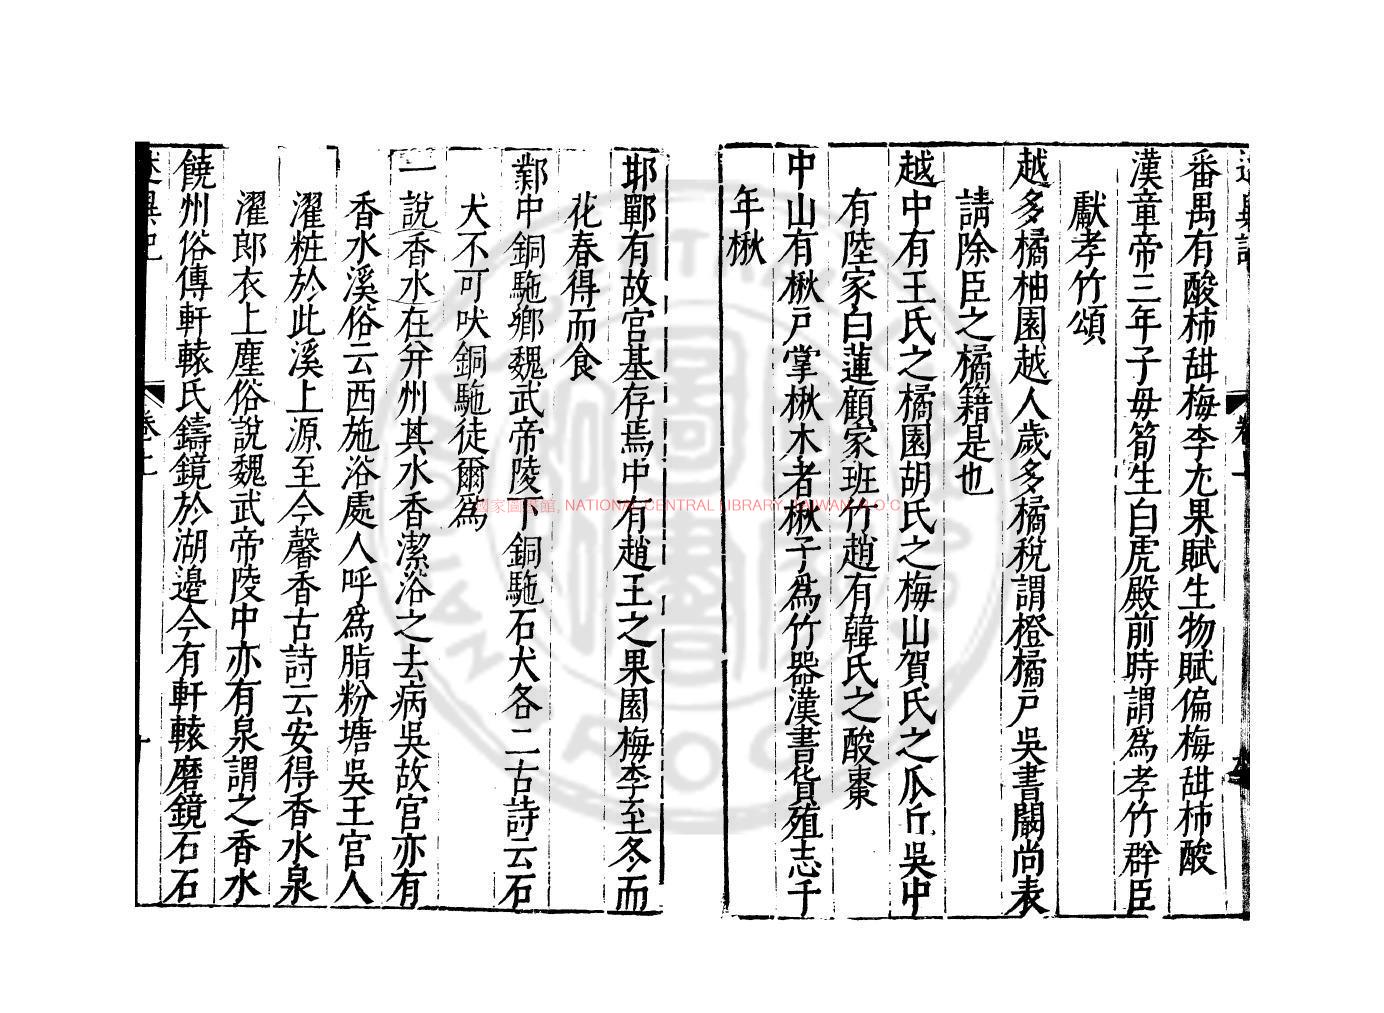 番禺有酸柿甜梅李尤果賦生物賦偏梅甜柿酸
漢章帝三年子母筍生白虎殿前時謂為孝竹群臣
獻孝竹頌
越多橘柚園越人歲多橘稅謂橙橘戶吳書闞尚表
請除臣之橘籍是也
越中有王氏之橘園胡氏之梅山賀氏之瓜丘吳中
有陸家白蓮顧家班竹趙有韓氏之酸棗
中山有楸戶掌楸木者楸子為竹器漢書貨殖志千
年楸
邯鄲有故宮基存焉中有趙王之果園梅李至冬而
花春得而食
鄴中銅駞鄉魏武帝陵下銅駞石犬各二古詩云石
犬不可吠銅駞徒爾為
一說香水在并州其水香潔浴之去病吳故宮亦有
香水溪俗云西施浴處人呼為脂粉塘吳王宮人
濯粧於此溪上源至今馨香古詩云安得香水泉
濯郎衣上塵俗說魏武帝陵中亦有泉謂之香水
饒州俗傳軒轅氏鑄鏡於湖邊今有軒轅磨鏡石石
國家圖書館, NATIONAL CENTRAL LIBRARY, TAIWAN, R.O.C